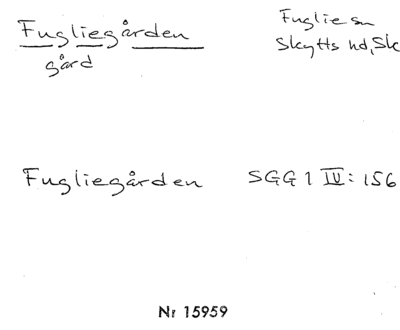 Fugliegården
gård
Fuglie sn
Skytts hd, Sk
Fugliegården SGG 1 IV: 156
Nr 15959